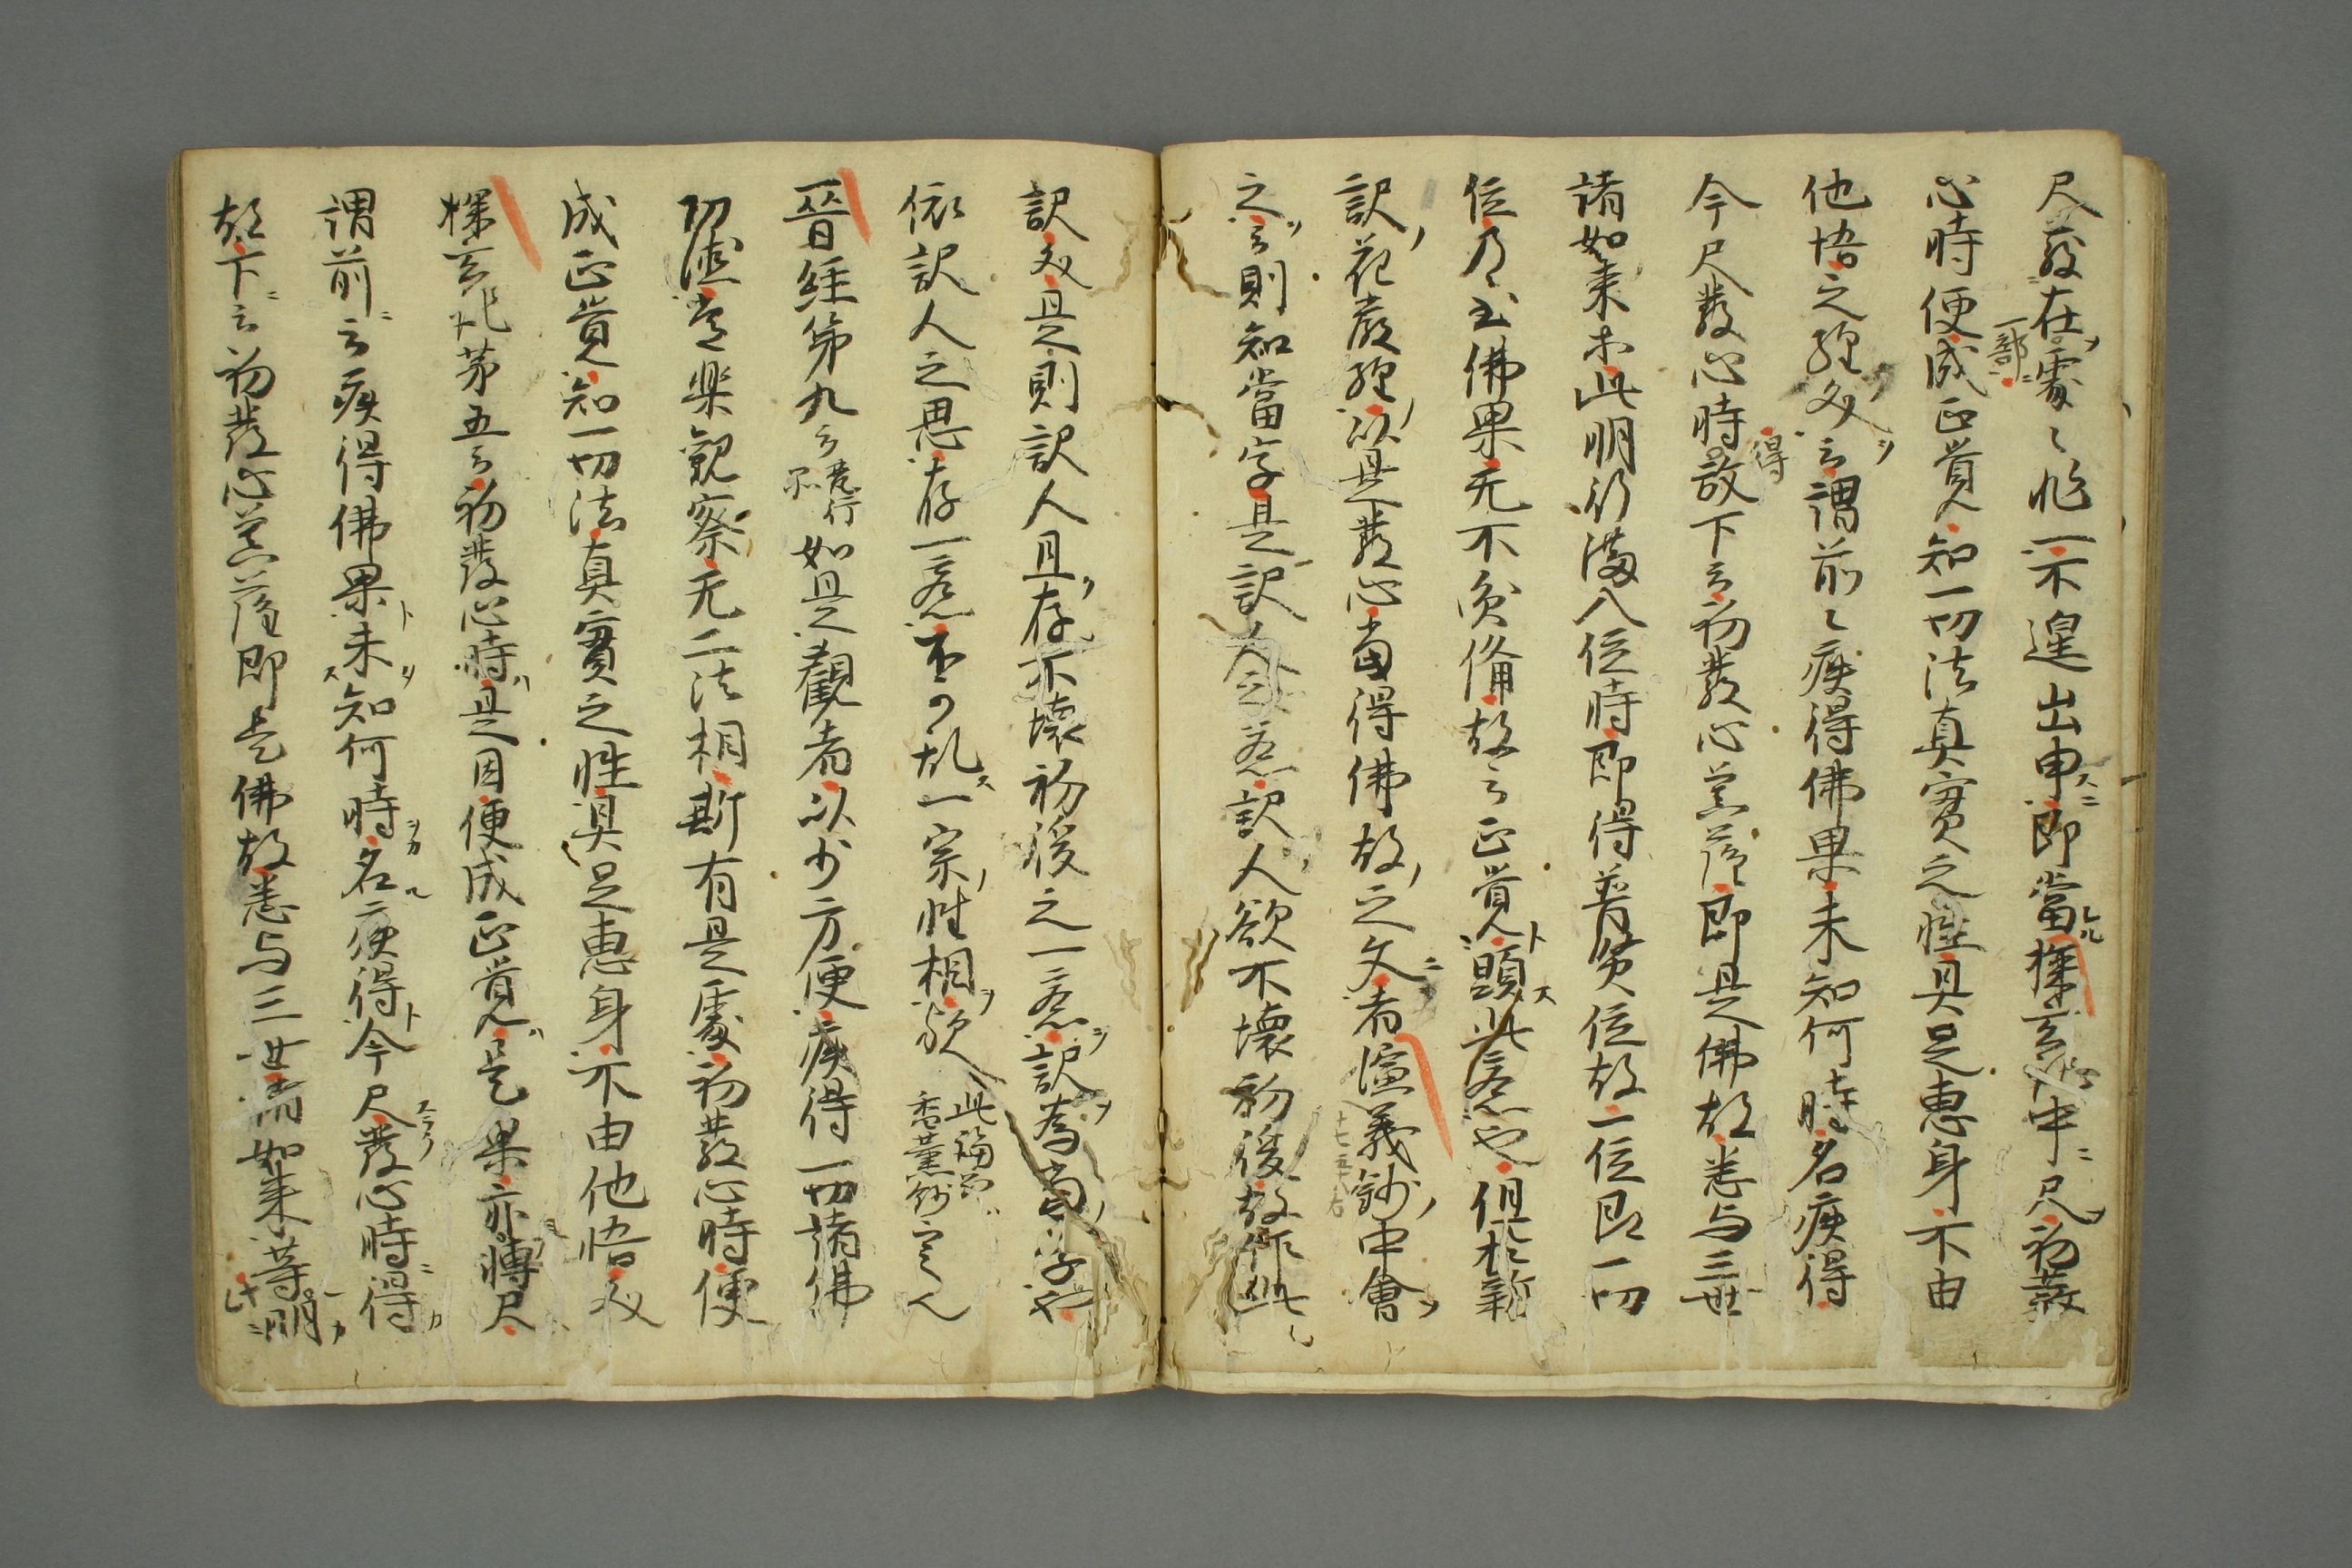 尺發在一部處々非一不遑出申即當探玄中尺初發
心時便成正覺知一切法真實之性具足惠身不由
他悟之經文云謂前々疾得佛果未知何時名疾得
今尺發心時得故下云初發心菩薩即是佛故悉与三世
諸如来木此明行滿八位時即得普賢位故一位即一切
位乃至佛果无不圓備故云正覺顕此意也但於新
訳花嚴經以是發心當得佛故之文者演義鈔中會
之云則知當字是訳人之意訳人欲不壞初後故作此
訳文是則訳人且存不壞初後之一意訳為當字也
依訳人之思存一意不可乱一宗性相歟
晉經第九云梵行品如是觀者以少方便疾得一切諸佛
功德常樂觀察无二法相斯有是處初發心時便
成正覺知一切法真實之性具足惠身不由他悟文
探玄記第五云初發心時是因便成正覺是果亦將尺
謂前云疾得佛果未知何時名疾得今尺發心時得
故下云初發心菩薩即是佛故悉与三世諸如来等明此